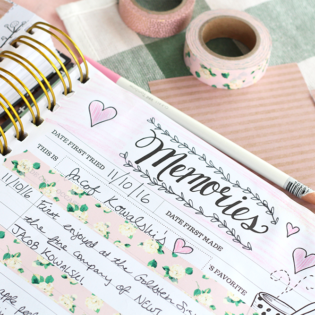 Memories
DATE FIRST TRIED 11/10/16
DATE FIRST MADE
THIS IS Jacob Kowalski's
'S FAVORITE
11/10/16
First enjoyed at the Golden
the fine company of Newt
JACOB KOWALSKI